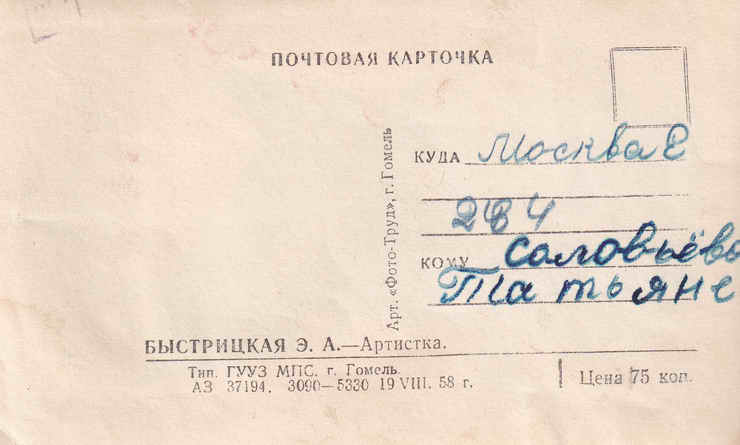 ПОЧТОВАЯ КАРТОЧКА
Арт. «Фото-Труд», г. Гомель
КУДА Москва Е
284
КОМУ Соловьёво
Татьяне
БЫСТРИЦКАЯ Э. А.—Артистка.
Тип. ГУУЗ МПС. г. Гомель.
АЗ 37194. 3090—5330 19 VIII. 58 г.
Цена 75 коп.